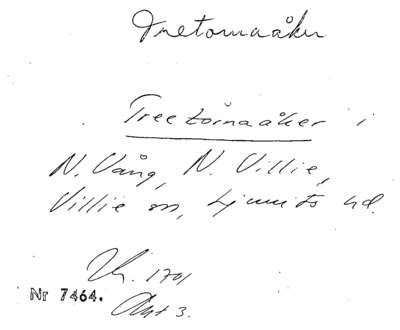 Tretornaåker
Treetörnaåker i
N. Vång, N. Villie,
Villie sn, Ljunits hd.
1701
Nr 7464. Akt 3.